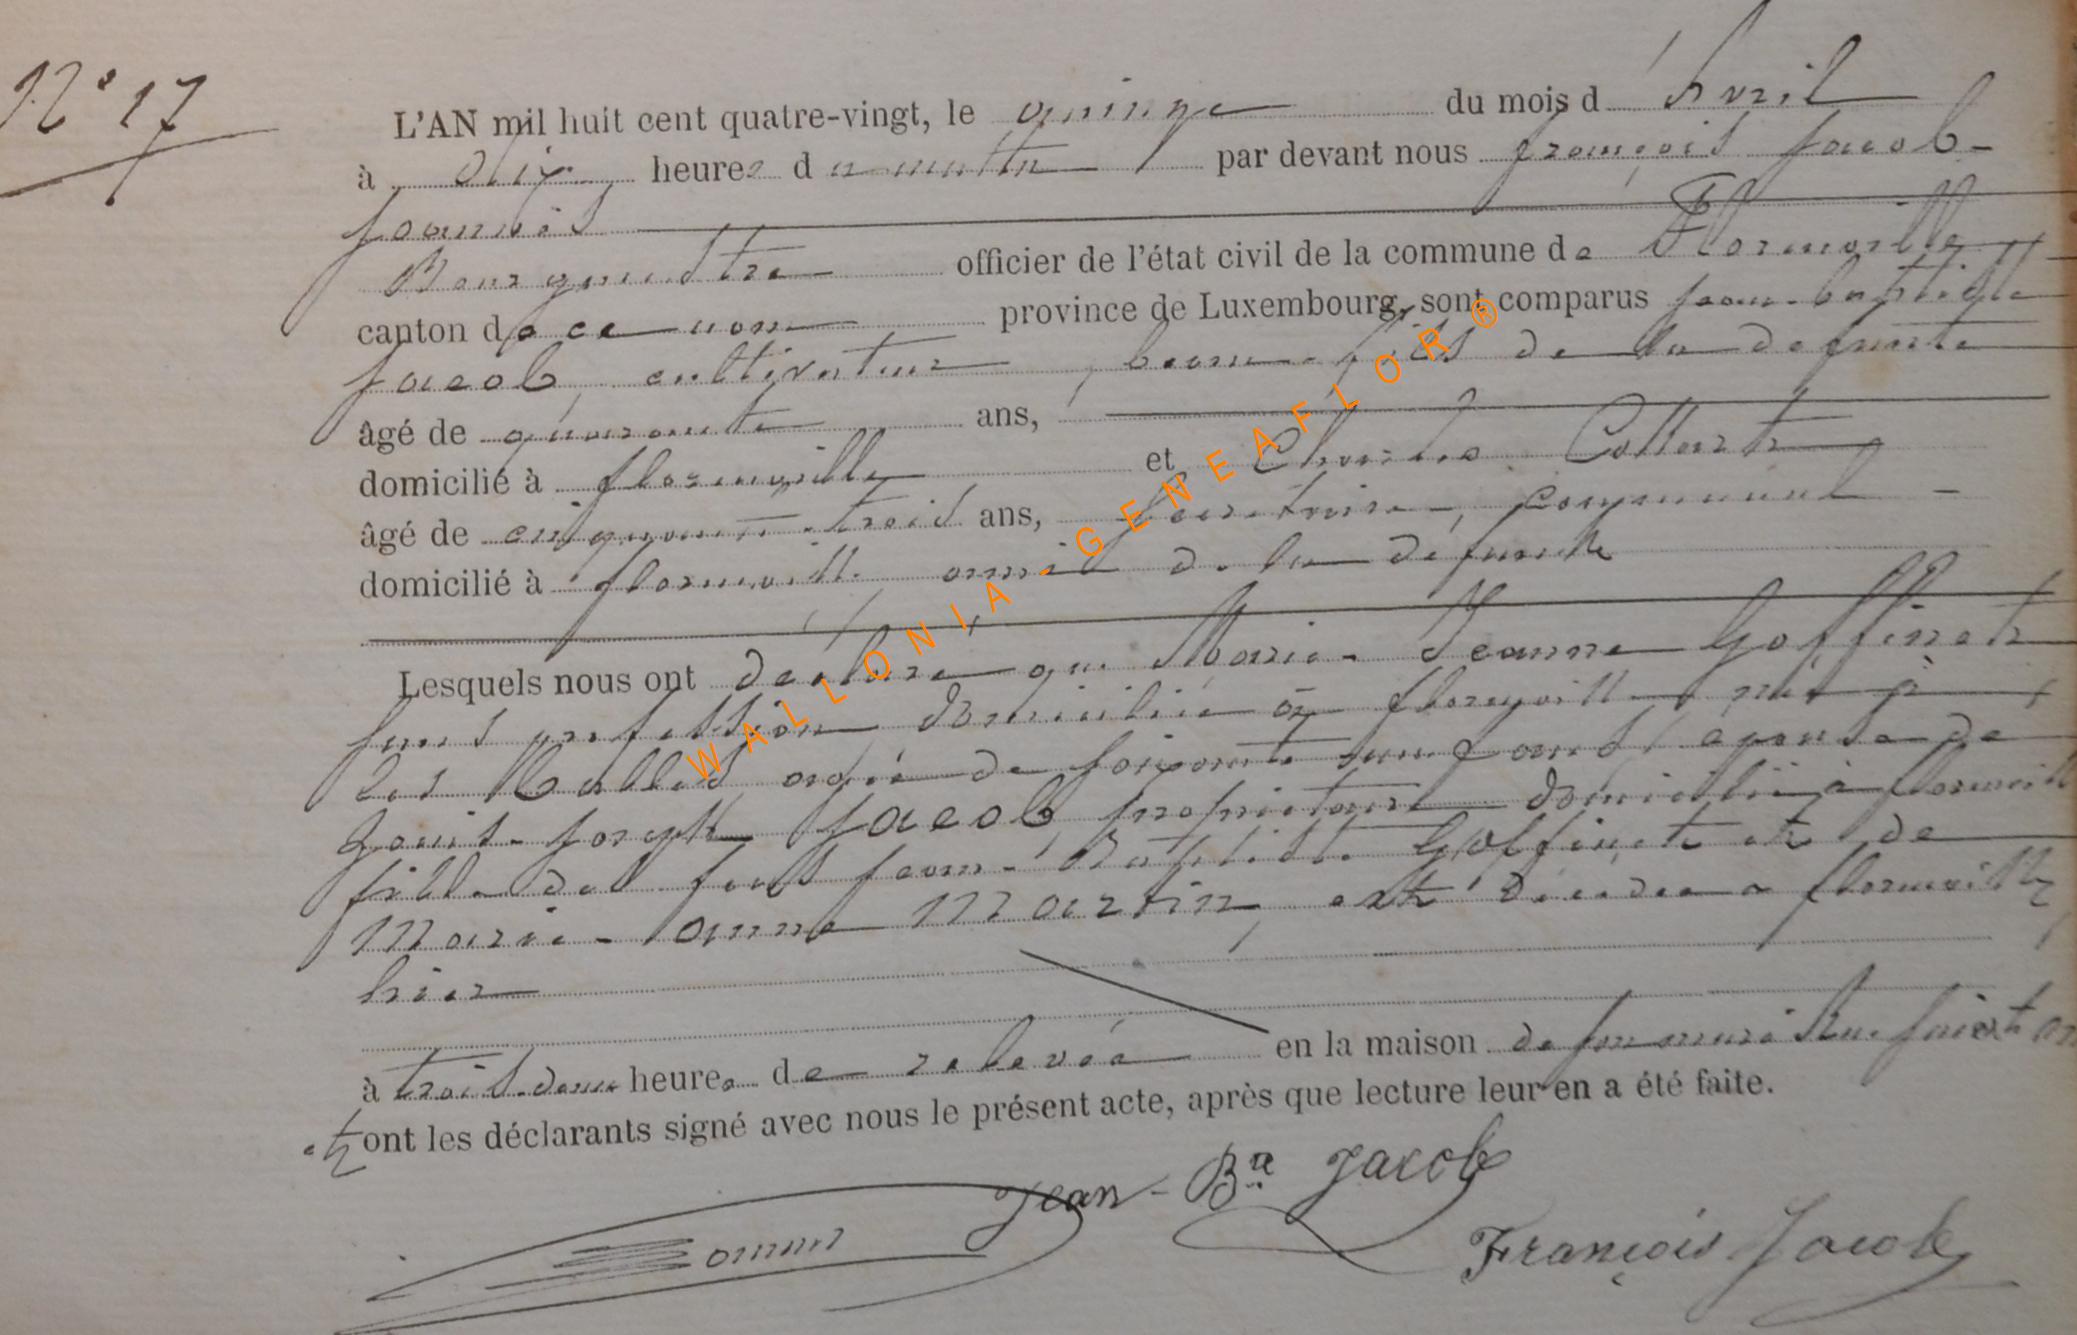 N° 17
L'AN mil huit cent quatre-vingt, le quinze du mois d'Avril
à dix heures du matin par devant nous françois Jacob-
Joannès
Bourgmestre officier de l'état civil de la commune de Florenville
canton de ce nom province de Luxembourg, sont comparus Jean-baptiste
Jacob, cultivateur, beau-fils de la defunte
âgé de quarante ans,
domicilié à florenville et Charles Collart
âgé de cinquante-trois ans, Secrétaire, communal
domicilié à florenville, ami de la défunte
Lesquels nous ont déclaré que Marie-Jeanne Goffinet
sans profession domiciliée à florenville, née à
Les Bulles agée de soixante ans, épouse de
Louis-Joseph Jacob, propriétaire domicilié à florenville
fille de feus Jean-Baptiste Goffinet et de
Marie-anne Martin, est décédée à florenville,
hier
à trois heures de relevée en la maison de son mari Rue
et ont les déclarants signé avec nous le présent acte, après que lecture leur en a été faite.
Jean-Bte Jacob
François Jacob
WALLONIA-GENEAFLOR®